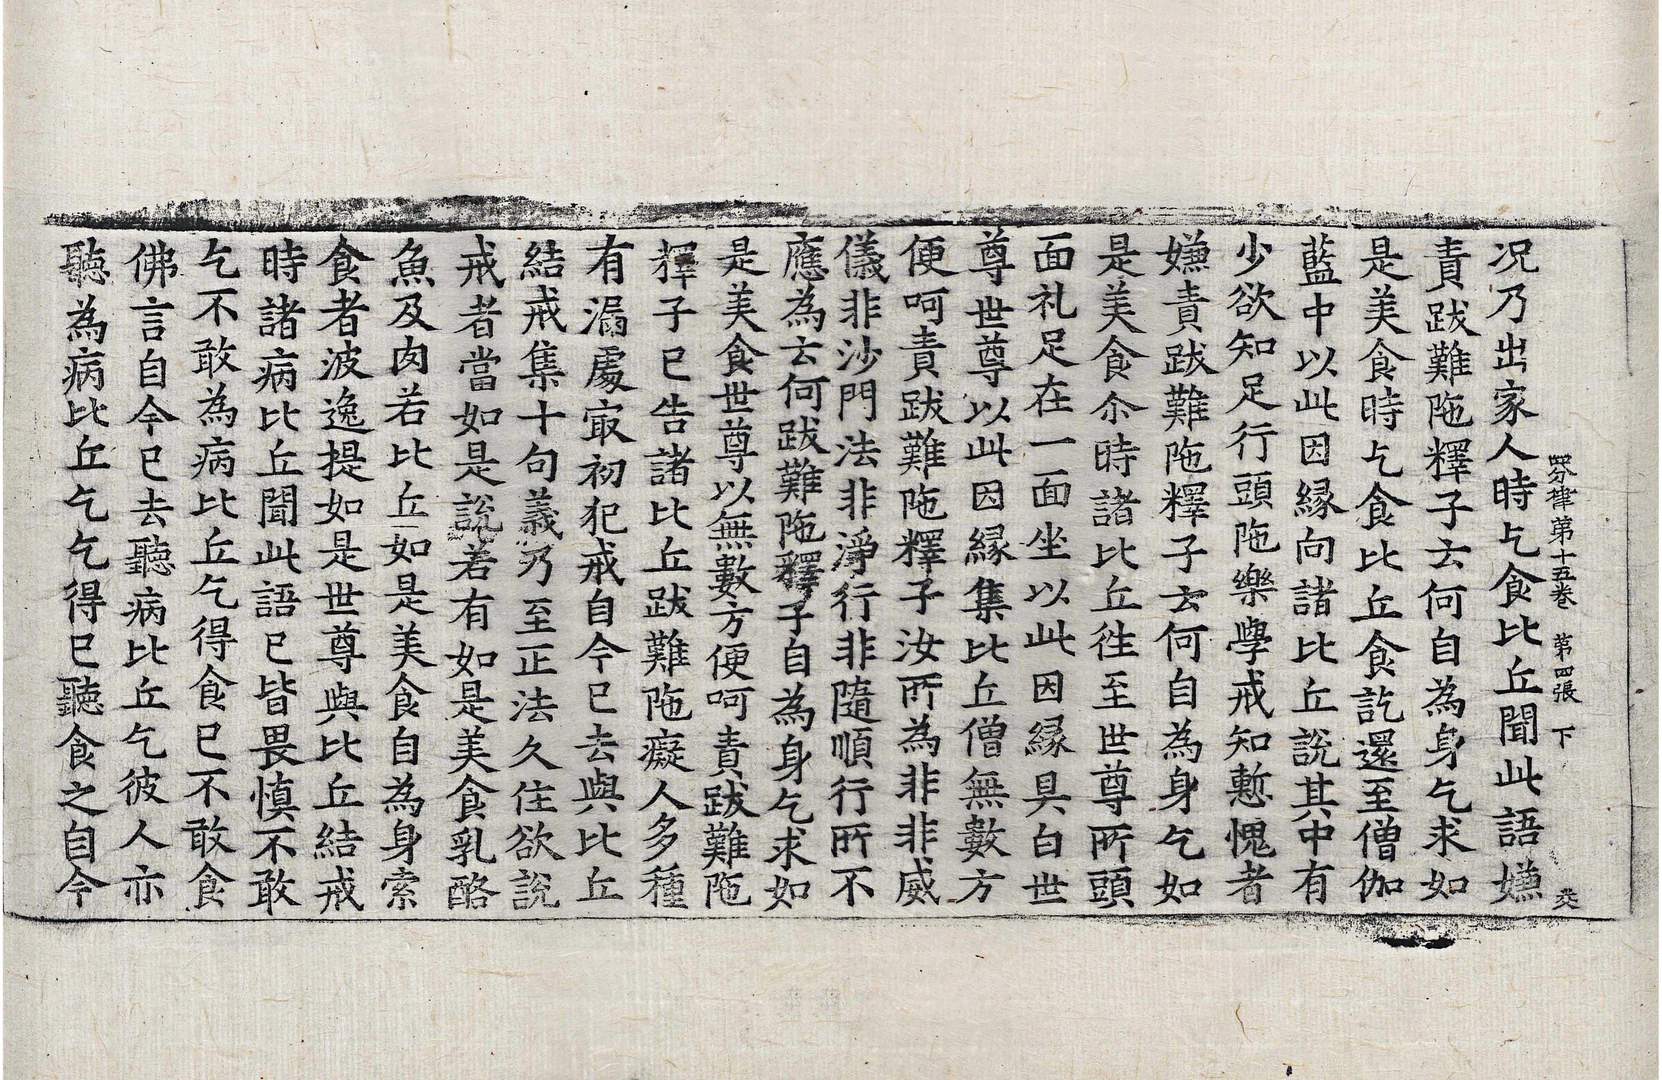 四分律第十五卷 第四張 下
况乃出家人時乞食比丘聞此語嫌
責跋難陁釋子云何自為身乞求如
是美食時乞食比丘食訖還至僧伽
藍中以此因緣向諸比丘說其中有
少欲知足行頭陁樂學戒知慙愧者
嫌責跋難陁釋子云何自為身乞如
是美食尒時諸比丘往至世尊所頭
面礼足在一面坐以此因緣具白世
尊世尊以此因緣集比丘僧無數方
便呵責跋難陁釋子汝所為非非威
儀非沙門法非淨行非隨順行所不
應為云何跋難陁釋子自為身乞求如
是美食世尊以無數方便呵責跋難陁
釋子已告諸比丘跋難陁癡人多種
有漏處冣初犯戒自今已去與比丘
結戒集十句義乃至正法久住欲說
戒者當如是說若有如是美食乳酪
魚及肉若比丘如是美食自為身索
食者波逸提如是世尊與比丘結戒
時諸病比丘聞此語已皆畏慎不敢
乞不敢為病比丘乞得食已不敢食
佛言自今已去聽病比丘乞彼人亦
聽為病比丘乞乞得已聽食之自今